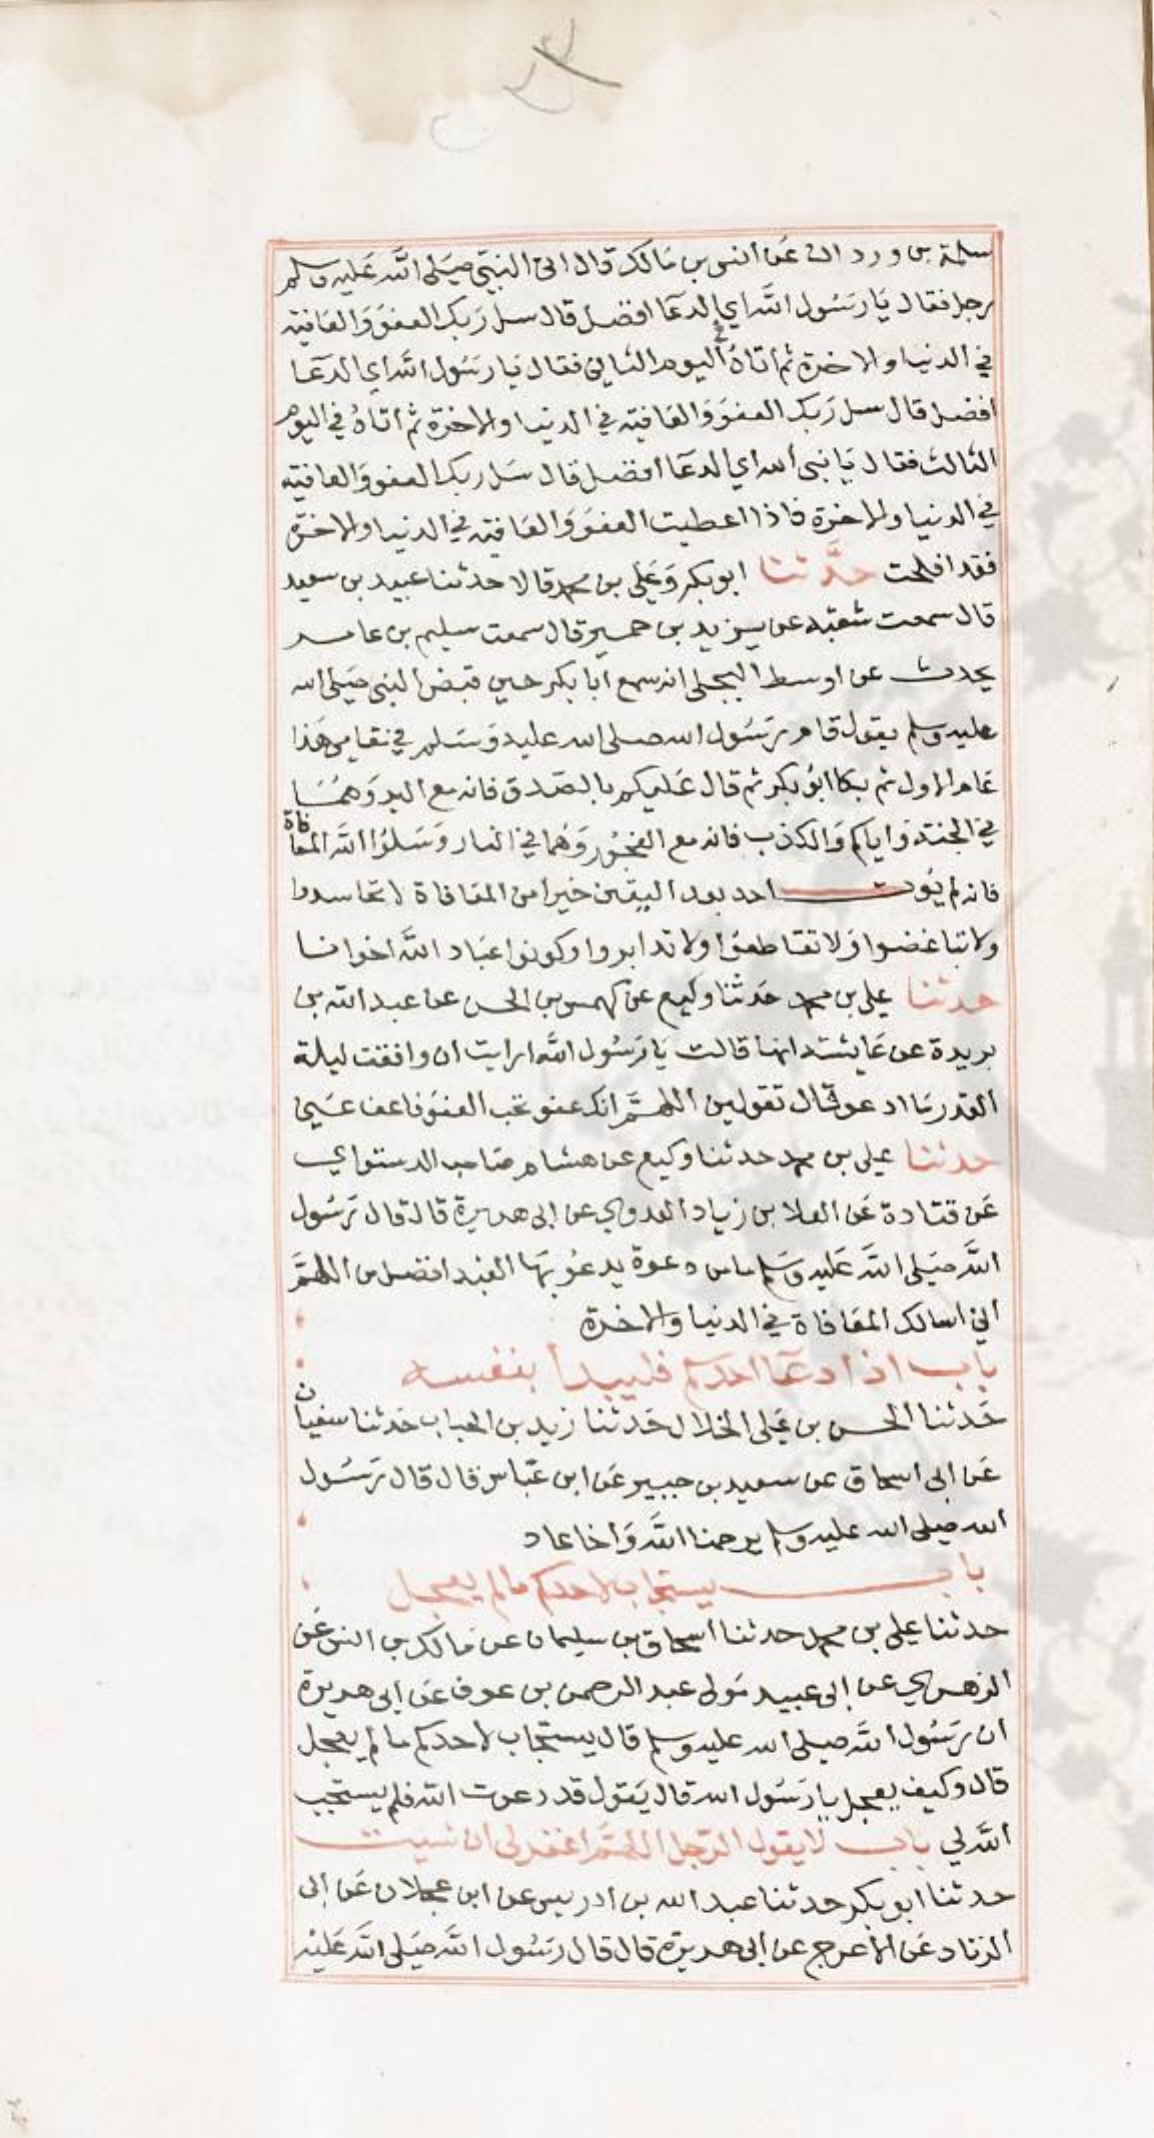 سلمة بن وردان عن أنس بن مالك قال اتى النبي صلى الله عليه وسلم
رجل فقال يا رسول الله اي الدعا افضل قال سل ربك العفو والعافية
في الدنيا والاخرة ثم اتاه في اليوم الثاني فقال يا رسول الله اي الدعا
افضل قال سل ربك العفو والعافية في الدنيا والاخرة ثم اتاه في اليوم
الثالث فقال يا نبي الله اي الدعا افضل قال سل ربك العفو والعافية
في الدنيا والاخرة فاذا اعطيت العفو والعافية في الدنيا والاخرة
فقد افلحت حدثنا ابو بكر وعلي بن محمد قالا حدثنا عبيد بن سعيد
قال سمعت شعبة عن يزيد بن خمير قال سمعت سليم بن عامر
يحدث عن اوسط البجلي انه سمع ابا بكر حين قبض النبي صلى الله
عليه وسلم يقول قام رسول الله صلى الله عليه وسلم في مقامي هذا
عام الاول ثم بكا ابو بكر ثم قال عليكم بالصدق فانه مع البر وهما
في الجنة واياكم والكذب فانه مع الفجور وهما في النار وسلوا الله المعافاة
فانه لم يوت احد بعد اليقين خيرا من المعافاة لا تحاسدوا
ولا تباغضوا ولا تقاطعوا ولا تدابروا وكونوا عباد الله اخوانا
حدثنا علي بن محمد حدثنا وكيع عن كهمس بن الحسن عن عبد الله بن
بريدة عن عايشة انها قالت يا رسول الله ارايت ان وافقت ليلة
القدر ما ادعو قال تقولين اللهم انك عفو تحب العفو فاعف عني
حدثنا علي بن محمد حدثنا وكيع عن هشام صاحب الدستواي
عن قتادة عن العلا بن زياد العدوي عن ابي هريرة قال قال رسول
الله صلى الله عليه وسلم ما من دعوة يدعو بها العبد افضل من اللهم
اني اسالك المعافاة في الدنيا والاخرة
باب اذا دعا احدكم فليبدا بنفسه
حدثنا الحسن بن علي الخلال حدثنا زيد بن الحباب حدثنا سفيان
عن ابي اسحاق عن سعيد بن جبير عن ابن عباس قال قال رسول
الله صلى الله عليه وسلم يرحمنا الله واخا عاد
باب يستجاب لاحدكم ما لم يعجل
حدثنا علي بن محمد حدثنا اسحاق بن سليمان عن مالك بن انس عن
الزهري عن ابي عبيد مولى عبد الرحمن بن عوف عن ابي هريرة
ان رسول الله صلى الله عليه وسلم قال يستجاب لاحدكم ما لم يعجل
قال وكيف يعجل يا رسول الله قال يقول قد دعوت الله فلم يستجب
الله لي باب لا يقول الرجل اللهم اغفر لي ان شيت
حدثنا ابو بكر حدثنا عبد الله بن ادريس عن ابن عجلان عن ابي
الزناد عن الاعرج عن ابي هريرة قال قال رسول الله صلى الله عليه